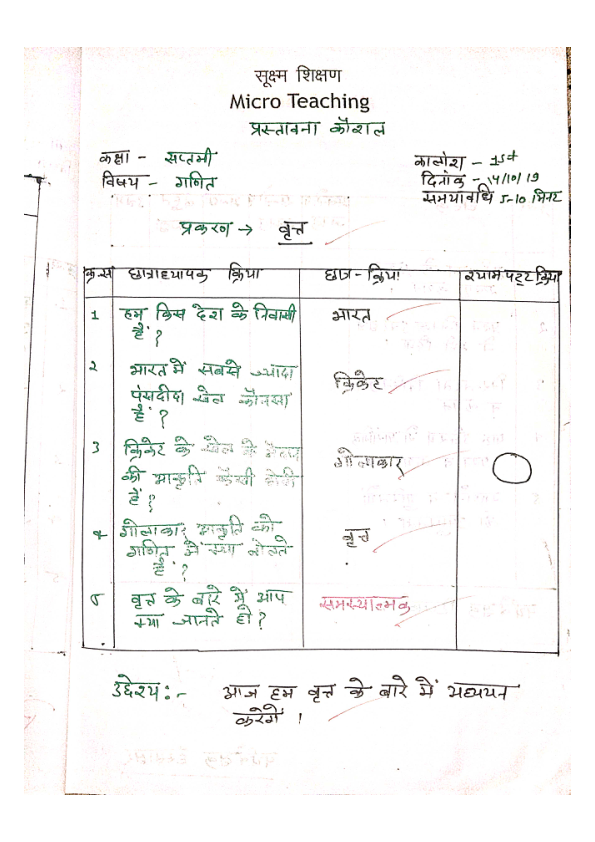 सूक्ष्म शिक्षण
Micro Teaching
प्रस्तावना कौशल
कक्षा - सप्तमी
विषय - गणित
कालांश - 1st
दिनांक - 14/10/19
समयावधि 5-10 मिनट
प्रकरण → वृत्त
क्र.स छात्राध्यापक क्रिया छात्र-क्रिया श्यामपट्ट क्रिया
1 हम किस देश के निवासी भारत
हैं ?
2 भारत में सबसे ज्यादा क्रिकेट
पंसदीदा खेल कौनसा
है ?
3 क्रिकेट के खेल के मैदान गोलाकार
की आकृति कैसी होती
है ?
4 गोलाकार आकृति को वृत्त
गणित में क्या बोलते
है ?
5 वृत्त के बारे में आप समस्यात्मक
क्या जानते हो ?
उद्देश्य :- आज हम वृत्त के बारे में अध्ययन
करेगें ।